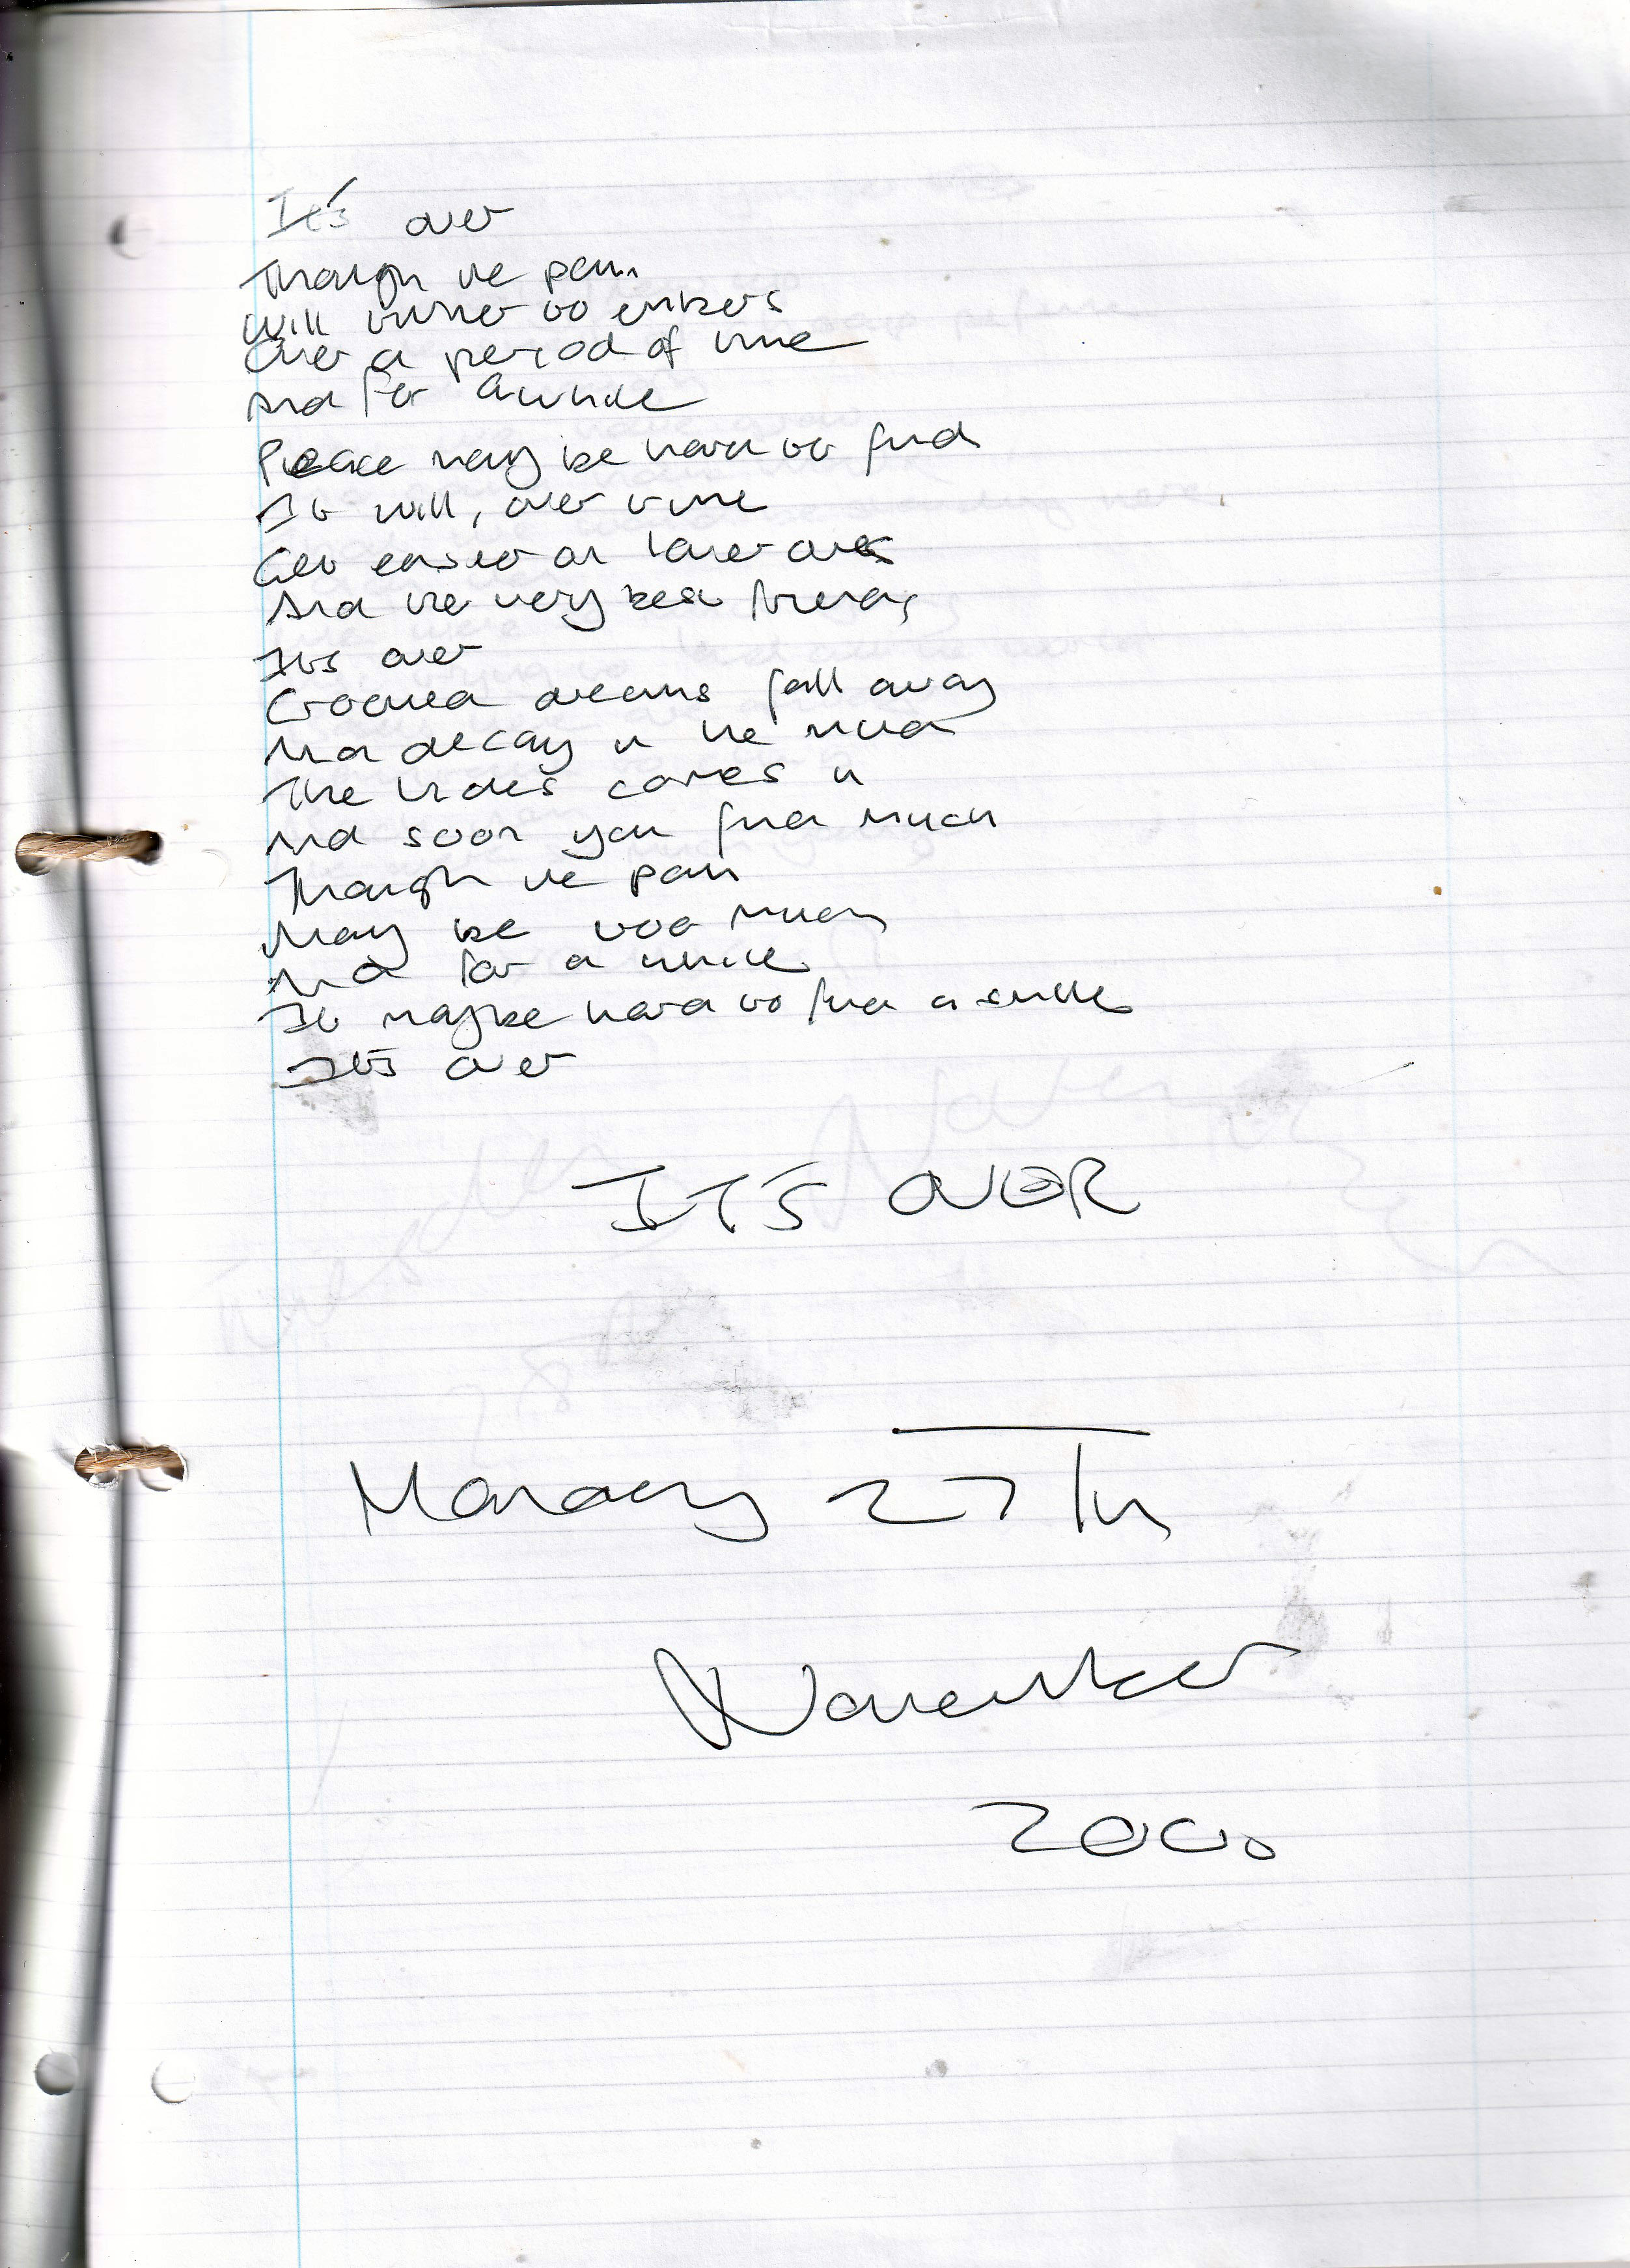 It's over
Though the pain
Will wither to embers
Over a period of time
And for awhile
Peace may be hard to find
It will, over time
Get easier on loved ones
And the very best friends
Its over
Crooked dreams fall away
And decay in the mud
The tides comes in
And soon you find much
Though the pain
May be too much
And for a while
It maybe hard to find a smile
It's over
IT'S OVER
Monday 27Th
November
2000